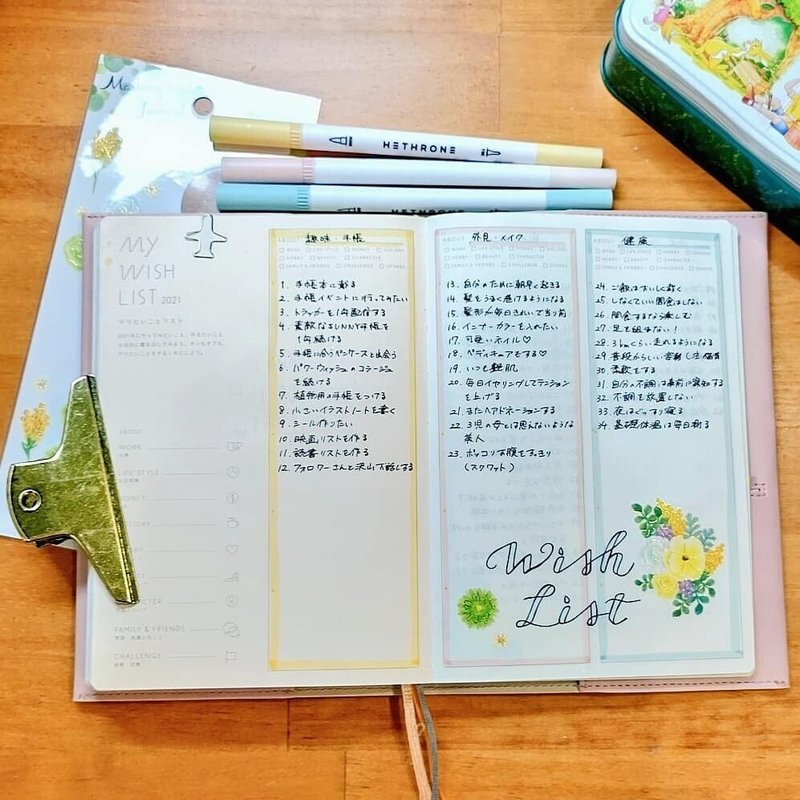 HETHRONE
HETHRONE
MY
WISH
LIST 2021
やりたいことリスト
WORK
LIFE STYLE
FAMILY & FRIENDS
CHALLENGE
ABOUT 趣味・手帳
1. 手帳本に載る
2. 手帳イベントに行ってみたい
3. トラッカーを1年間
4. 素敵なSUNNY手帳を
1年続ける
5. 手帳に合うペンケースと出会う
6. パワーウィッシュのコラージュ
を続ける
7. 植物用の手帳をつける
8. 小さいイラストノートを書く
9. シール作りたい
10. 映画リストを作る
11. 読書リストを作る
12. フォロワーさんと沢山お話しする
ABOUT 外見・メイク
13. 自分のために朝早く起きる
14. 髪をうまく巻けるようになる
15. 髪形が毎日きれいで周り前
16. インナーカラーを入れたい
17. 可愛いネイル♡
18. ペディキュアをする♡
19. いつも艶肌
20. 毎日イヤリングしてテンション
を上げる
21. またヘアドネーションする
22. 3児の母とは思えないような
美人
23. ポッコリお腹をすっきり
(スクワット)
ABOUT 健康
24. ご飯はおいしく軽く
25. しなくていい間食はしない
26. 間食するなら楽しむ
27. 足を組まない!
28. 3kmくらい走れるようになる
29.
30. 柔軟をする
31. 自分の不調は事前に察知する
32. 不調を放置しない
33. 夜はぐっすり寝る
34. 基礎体温は毎日測る
Wish
List